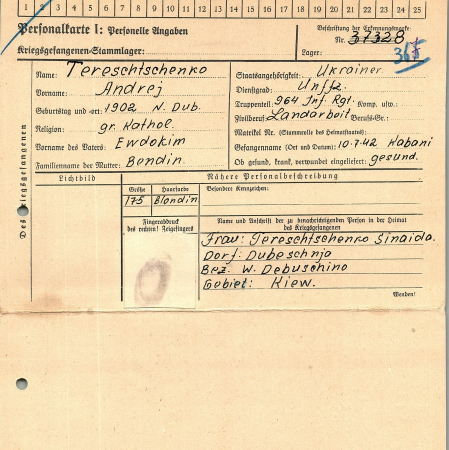 1 2 3 4 5 6 7 8 9 10 11 12 13 14 15 16 17 18 19 20 21 22 23 24 25
Personalkarte I: Personelle Angaben
Kriegsgefangenen-Stammlager:
Beschriftung der Erkennungsmarke
Nr. 37328
Lager: 365
Des Kriegsgefangenen
Name: Tereschtschenko
Vorname: Andrej
Geburtstag und -ort: 1902 N. Dub.
Religion: gr. Kathol.
Vorname des Vaters: Ewdokim
Familienname der Mutter: Bendin
Staatsangehörigkeit: Ukrainer
Dienstgrad: Unffz.
Truppenteil: 964 Inf. Rgt. Komp. usw.:
Zivilberuf: Landarbeit Berufs-Gr.:
Matrikel Nr. (Stammrolle des Heimatstaates):
Gefangennahme (Ort und Datum): 10.7.42 Kabani
Ob gesund, krank, verwundet eingeliefert: gesund.
Lichtbild
Nähere Personalbeschreibung
Größe Haarfarbe Besondere Kennzeichen:
175 Blondin
Fingerabdruck
des rechten! Zeigefingers
Name und Anschrift der zu benachrichtigenden Person in der Heimat
des Kriegsgefangenen
Frau: Tereschtschenko Sinaida.
Dorf: Dubeschnja
Bez. W. Debuschino
Gebiet: Kiew.
Wenden!